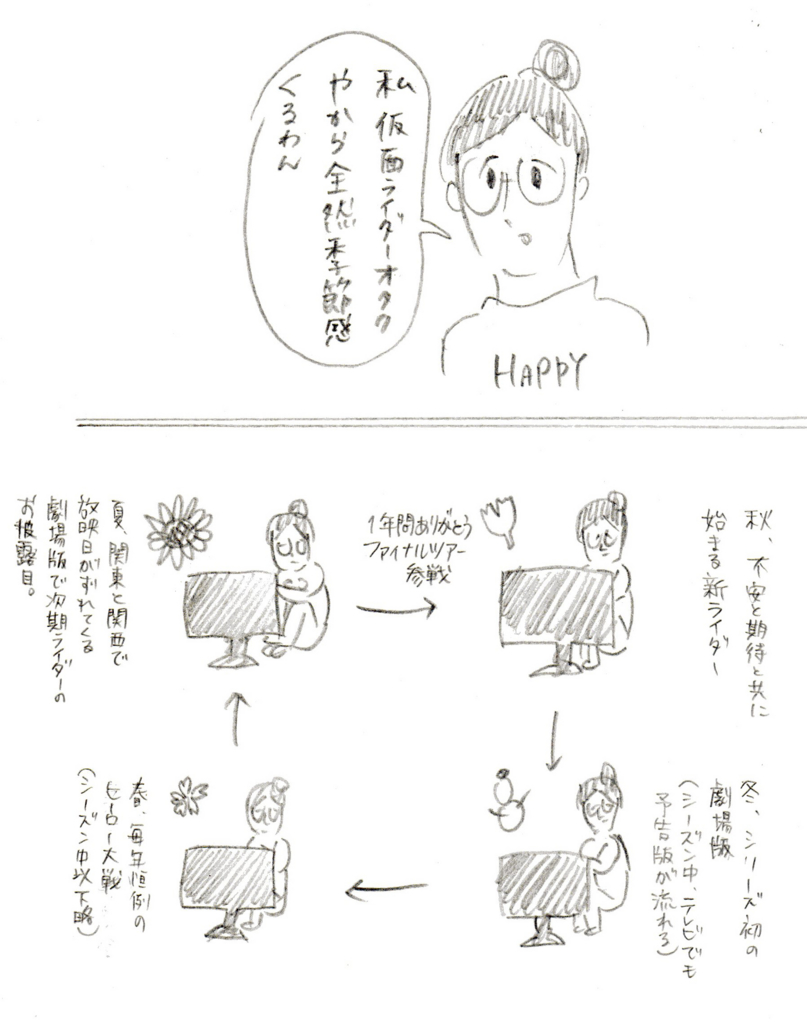 私 仮面ライダーオタク
やから全然季節感
くるわん
HAPPY
秋、不安と期待と共に
始まる新ライダー
冬、シリーズ初の
劇場版
(シーズン中、テレビでも
予告版が流れる)
春、毎年恒例の
ヒーロー大戦
(シーズン中以下略)
夏、関東と関西で
放映日がずれてくる
劇場版で次期ライダーの
お披露目。
1年間ありがとう
ファイナルツアー
参戦